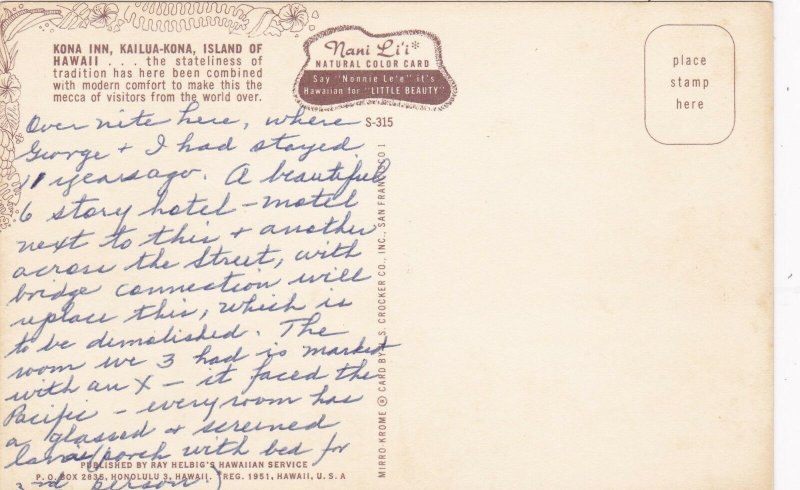 KONA INN, KAILUA-KONA, ISLAND OF
HAWAII . . . the stateliness of
tradition has here been combined
with modern comfort to make this the
mecca of visitors from the world over.
Nani Li'i*
NATURAL COLOR CARD
Say "Nonnie Le'e" it's
Hawaiian for "LITTLE BEAUTY"
S-315
place
stamp
here
Over nite here, where
George + I had stayed
11 years ago. A beautiful
6 story hotel-motel
next to this + another
across the Street, with
bridge connection will
replace this, which is
to be demolished. The
room we 3 had is marked
with an X - it faced the
Pacific - every room has
a glassed + screened
lanai (porch with bed for
3rd person.)
PUBLISHED BY RAY HELBIG'S HAWAIIAN SERVICE
P. O. BOX 2835, HONOLULU 3, HAWAII. *REG. 1951, HAWAII, U. S. A
MIRRO-KROME ® CARD BY H. S. CROCKER CO., INC., SAN FRANCISCO 1